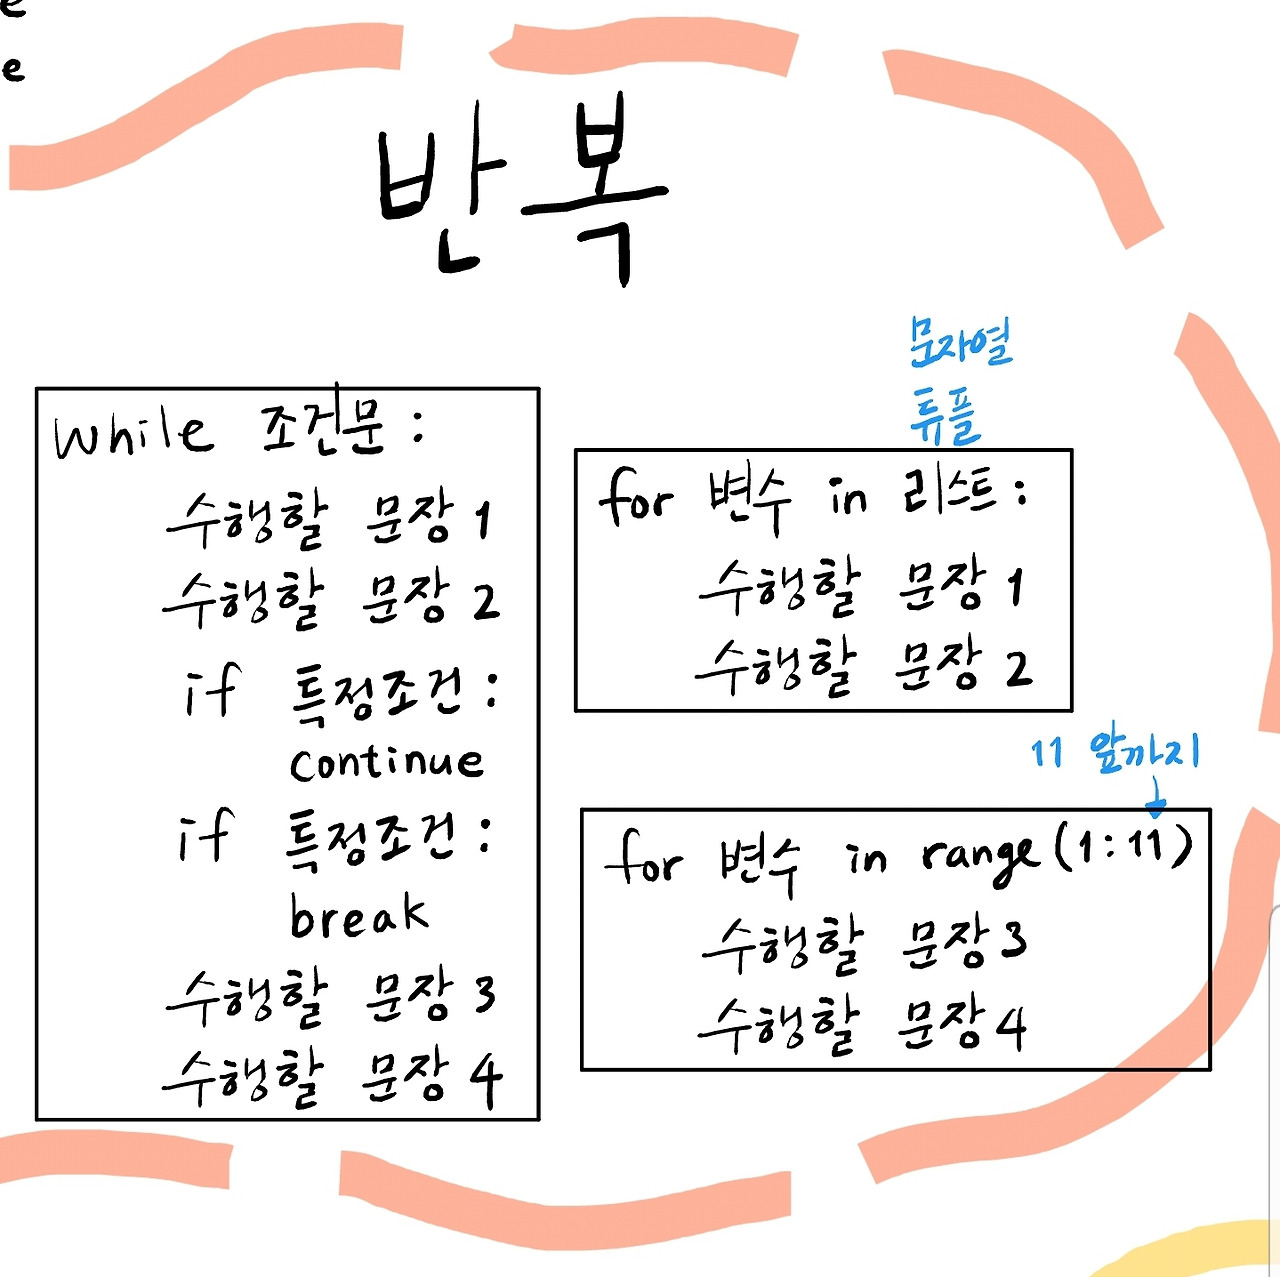 e
e
반복
while 조건문:
수행할 문장 1
수행할 문장 2
if 특정조건:
continue
if 특정조건:
break
수행할 문장 3
수행할 문장 4
문자열
튜플
for 변수 in 리스트:
수행할 문장 1
수행할 문장 2
11 앞까지
for 변수 in range(1:11)
수행할 문장 3
수행할 문장 4